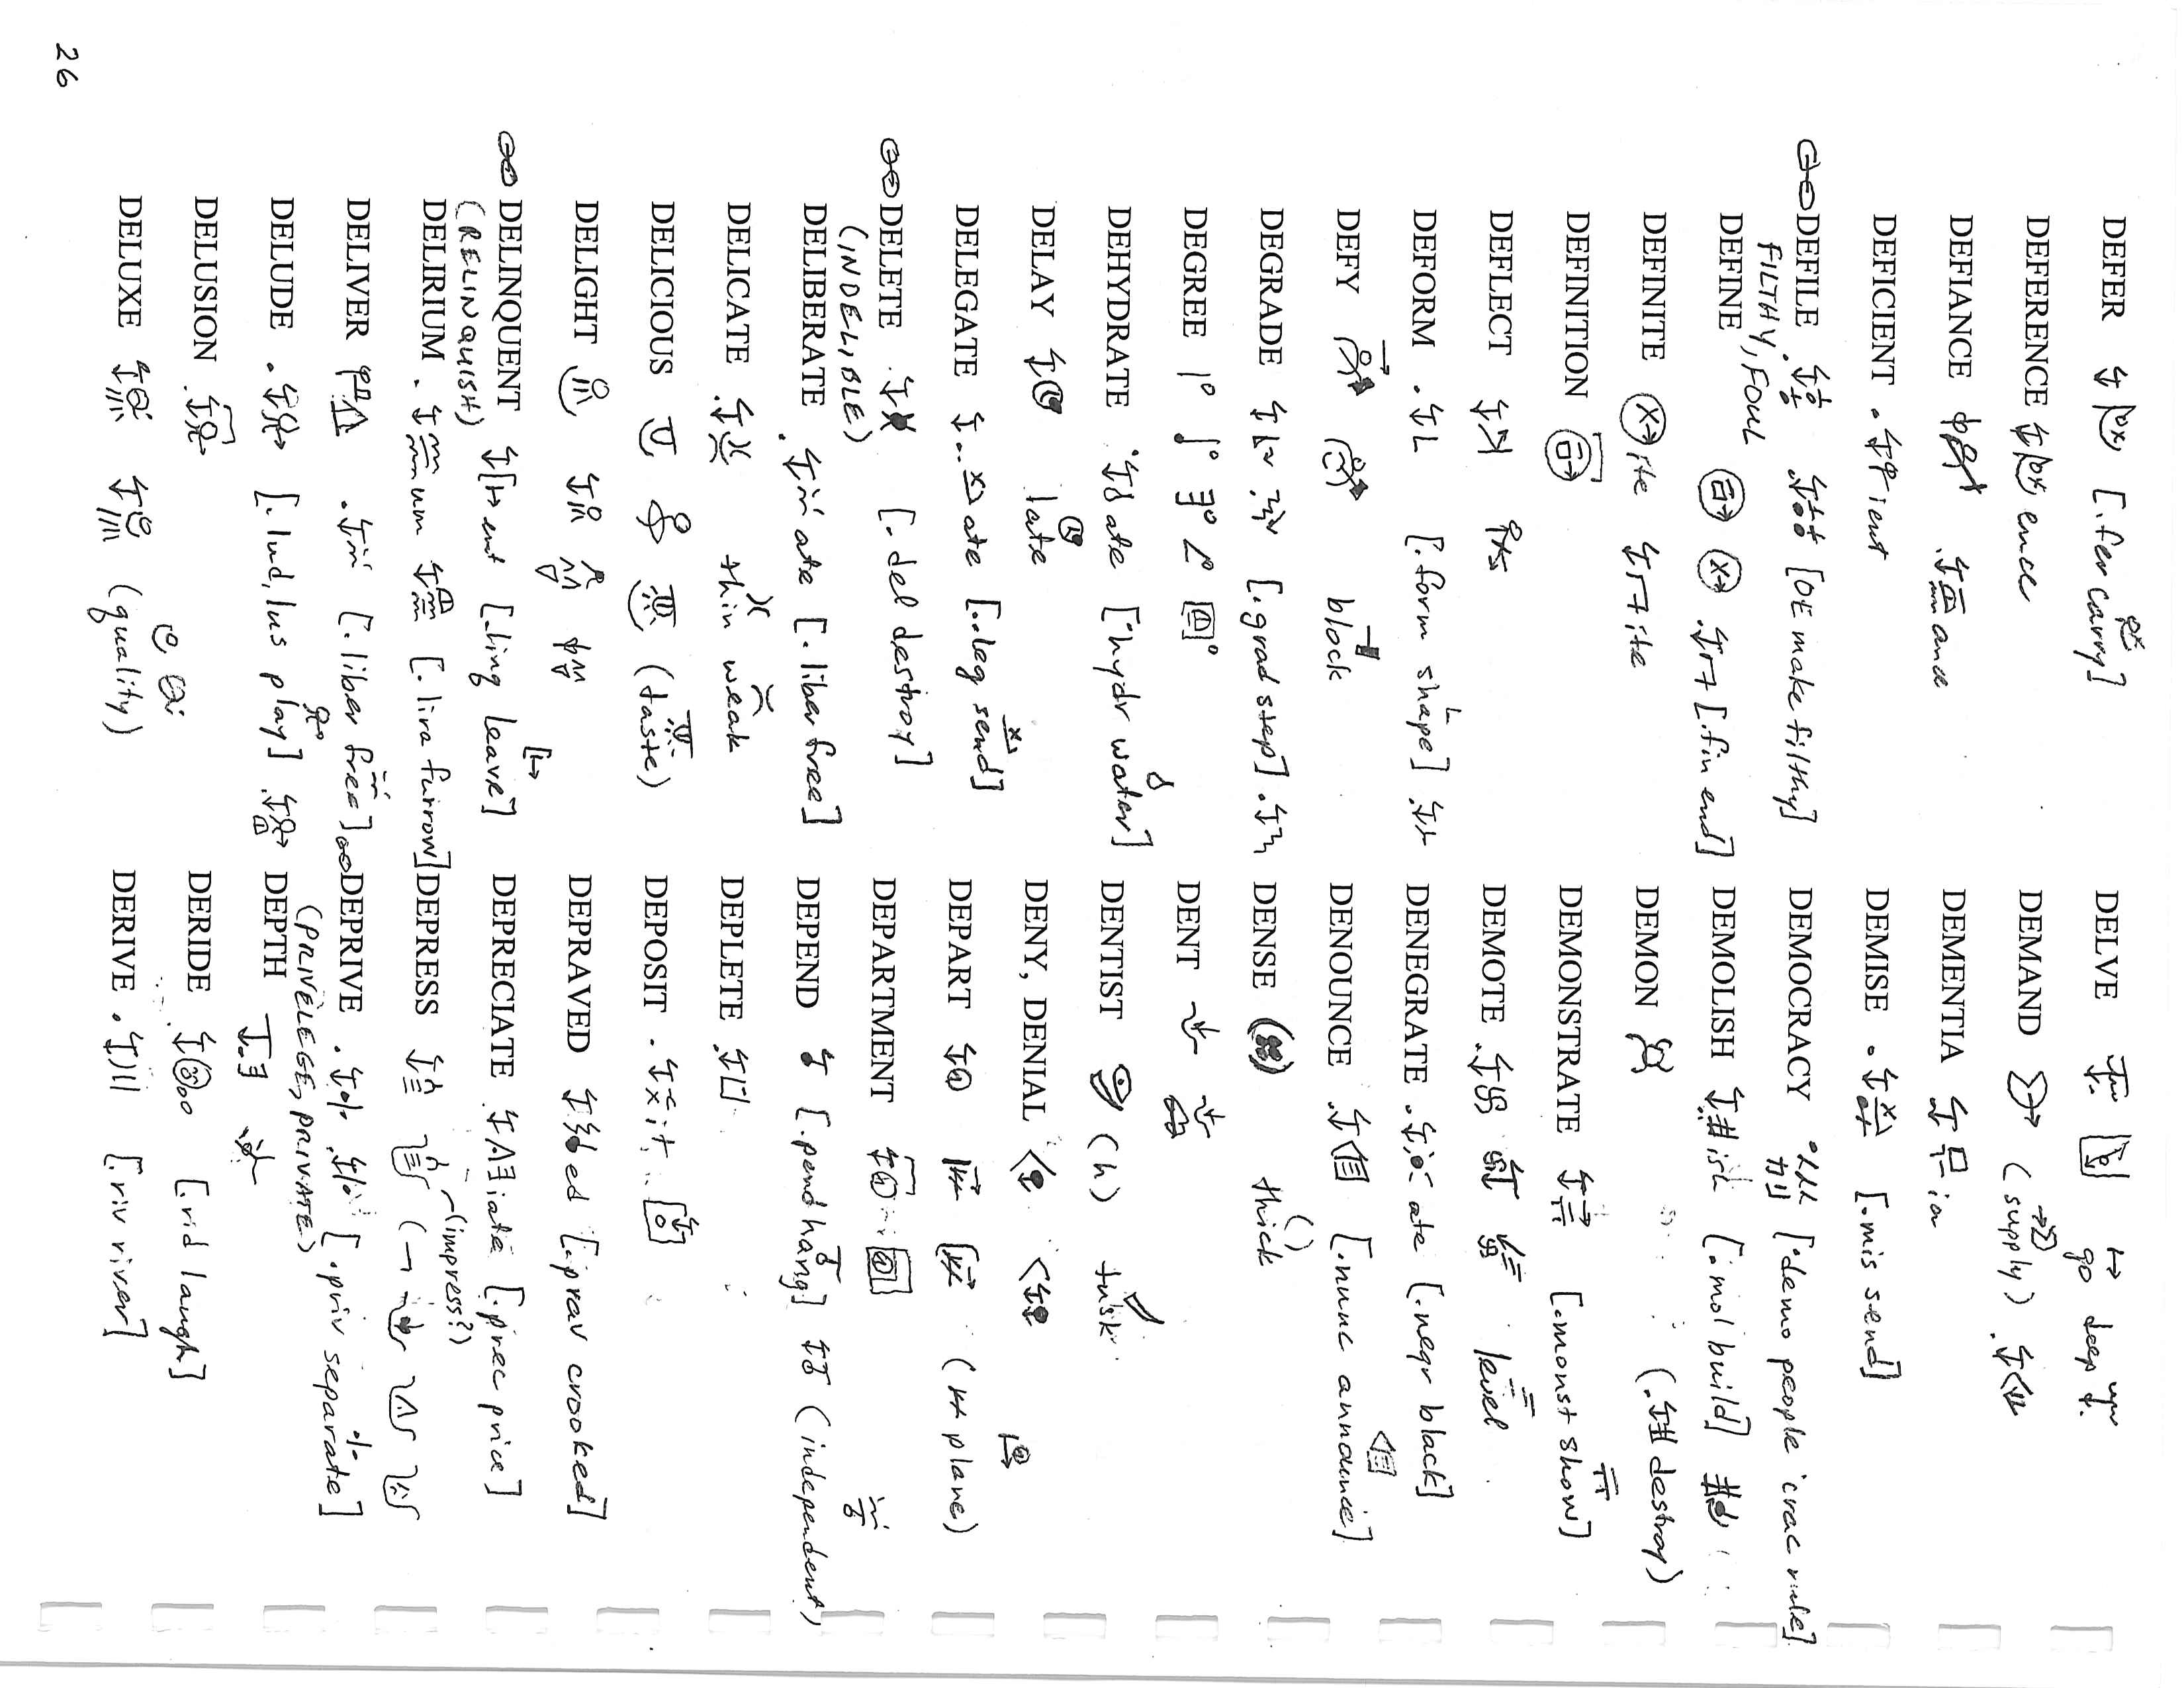 DEFER [.fer carry]
DEFERENCE ence
DEFIANCE ance
DEFICIENT ient
DEFILE [OE make filthy]
FILTHY, FOUL
DEFINE [.fin end]
DEFINITE ite ite
DEFINITION
DEFLECT
DEFORM [.form shape]
DEFY block
DEGRADE [.grad step]
DEGREE
DEHYDRATE ate [.hydr water]
DELAY late
DELEGATE ate [..leg send]
DELETE [.del destroy]
(INDELIBLE)
DELIBERATE ate [.liber free]
DELICATE thin weak
DELICIOUS (taste)
DELIGHT
DELINQUENT ent [.linq leave]
(RELINQUISH)
DELIRIUM um [.lira furrow]
DELIVER [.liber free]
DELUDE [.lud, lus play]
DELUSION
DELUXE (quality)
DELVE go deep
DEMAND (supply)
DEMENTIA ia
DEMISE [.mis send]
DEMOCRACY [.demo people crac rule]
DEMOLISH ish [.mol build]
DEMON (destroy)
DEMONSTRATE [.monst show]
DEMOTE level
DENEGRATE ate [.negr black]
DENOUNCE [.nunc announce]
DENSE thick
DENT
DENTIST (h) tusk
DENY, DENIAL
DEPART (plane)
DEPARTMENT
DEPEND [.pend hang] (independent)
DEPLETE
DEPOSIT it
DEPRAVED ed [.prav crooked]
DEPRECIATE iate [.prec price]
DEPRESS (impress?)
DEPRIVE [.priv separate]
(PRIVELEGE, PRIVATE)
DEPTH
DERIDE [.rid laugh]
DERIVE [.riv river]
26